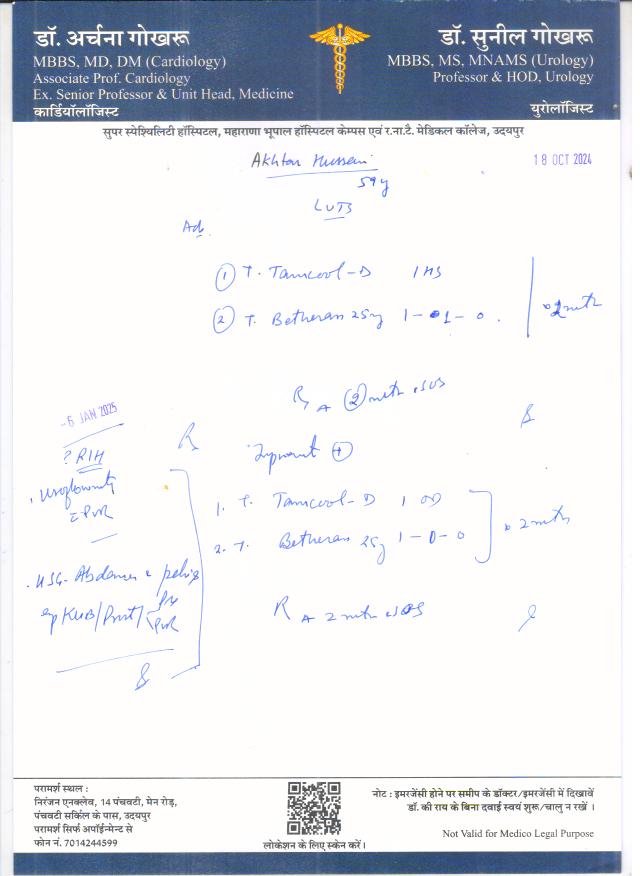 डॉ. अर्चना गोखरू
MBBS, MD, DM (Cardiology)
Associate Prof. Cardiology
Ex. Senior Professor & Unit Head, Medicine
कार्डियॉलॉजिस्ट
डॉ. सुनील गोखरू
MBBS, MS, MNAMS (Urology)
Professor & HOD, Urology
युरोलॉजिस्ट
सुपर स्पेशियलिटी हॉस्पिटल, महाराणा भूपाल हॉस्पिटल केम्पस एवं र.ना.टै. मेडिकल कॉलेज, उदयपुर
Akhtar Hussein
18 OCT 2024
59y
LUTS
Ad.
① T. Tamcool-D 1 HS
② T. Betheran 25mg 1-1-0. 2 mth
R A ② mth SOS
-6 JAN 2025
R
? RIH
Improvement +
Uroflowmetry
c PVR
1. T. Tamcool-D 1 OD
2. T. Betheran 25mg 1-0-0 2 mth
USG. Abdomen & pelvis
KUB/Prost/ PVR
R A 2 mth SOS
परामर्श स्थल :
निरंजन एनक्लेव, 14 पंचवटी, मेन रोड़,
पंचवटी सर्किल के पास, उदयपुर
परामर्श सिर्फ अपॉईन्मेन्ट से
फोन नं. 7014244599
लोकेशन के लिए स्केन करें।
नोट : इमरजेंसी होने पर समीप के डॉक्टर/इमरजेंसी में दिखावें
डॉ. की राय के बिना दवाई स्वयं शुरू/चालु न रखें ।
Not Valid for Medico Legal Purpose